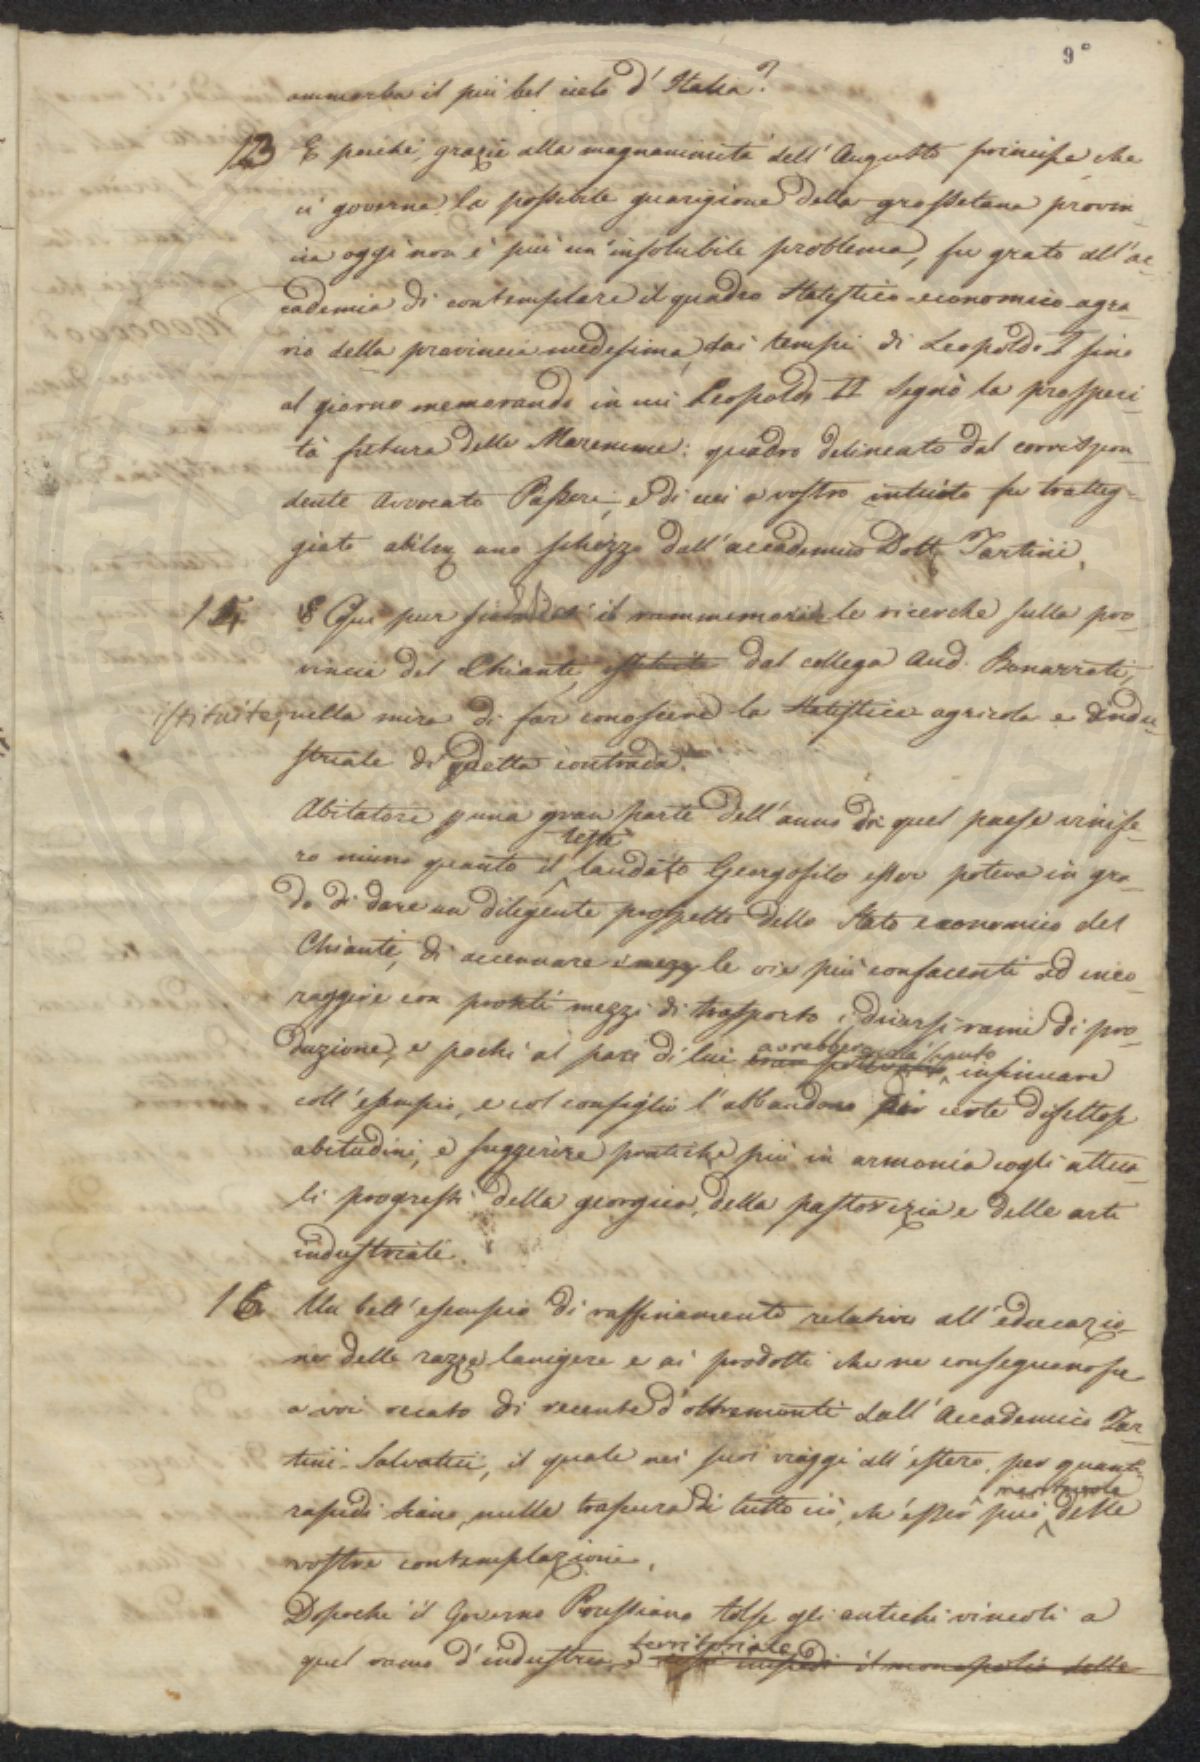 9°
ammorba il più bel cielo d'Italia?
13 E perchè, grazie alla magnanimità dell'Augusto principe che
ci governa la possibile guarigione della grossetana provin-
cia oggi non è più un'insolubile problema, fu grato all'ac-
cademia di contemplare il quadro statistico-economico-agra-
rio della provincia medesima, dai tempi di Leopoldo I fino
al giorno memorando in cui Leopoldo II segnò la prosperi-
tà futura delle Maremme: quadro delineato dal corrispon-
dente Avvocato Passeri, e di cui a vostro intuito fu tratteg-
giato uno schizzo dall'accademico Dott. Tartini.
Qui pur il rammemorar le ricerche sulla pro-
vincia del Chianti, istituite dal collega Aud. Bonarroti,
istituite, nella mira di far conoscere la statistica agricola e indu-
striale di detta contrada.
Abitatore p una gran parte dell'anno di quel paese vinife-
testè
ro niuno quanto il laudato Georgofilo esser poteva in gra-
do di dare un diligente prospetto dello stato economico del
Chianti, di accennare i mezzi le vie più confacenti ad inco-
raggire con pronti mezzi di trasporto i diversi rami di pro-
duzione, e pochi al pari di lui
avrebber saputo
insinuare
coll'esempio, e col consiglio l'abbandono di certe difettose
abitudini, e suggerire pratiche più in armonia cogli attua-
li progressi della georgica, della pastorizia e delle arti
industriali.
16 Un bell'esempio di raffinamento relativo all'educazio-
ne delle razze lanigere e ai prodotti che ne conseguono fu
a voi recato di recente d'oltremonti dall'Accademico Tar-
tini-Salvatici, il quale nei suoi viaggi all'estero, per quanto
rapidi siano, nulla trascura di tutto ciò, ch'esser può
meritevole
delle
vostre contemplazioni.
Dopochè il Governo Prussiano tolse gli antichi vincoli a
territoriale
quel ramo d'industria, e impedì il monopolio delle